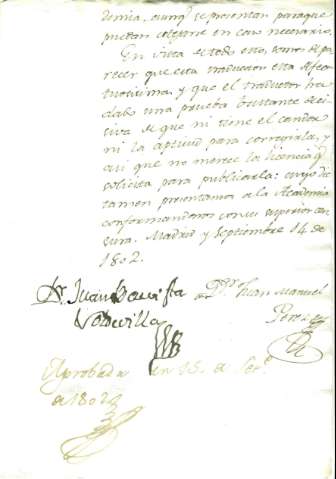 demia, aunq.e se presentan paraque
puedan cotejarse en caso necesario.
En vista de todo esto, somos de pa-
recer que esta traduccion esta defec-
tuosisima, y que el traductor ha
dado una prueba bastante deci-
siva de que ni tiene el candor
ni la aptitud para corregirla, y
asi que no merece la licencia q.
solicita para publicarla: cuyo dic-
tamen presentamos a la Academia
conformandonos con su superior cen-
sura. Madrid y Septiembre 14 de
1802.
Dr. Juan Bautista D.r Juan Manuel
Perez
Aprobada en 15 de Sep.e
de 1802